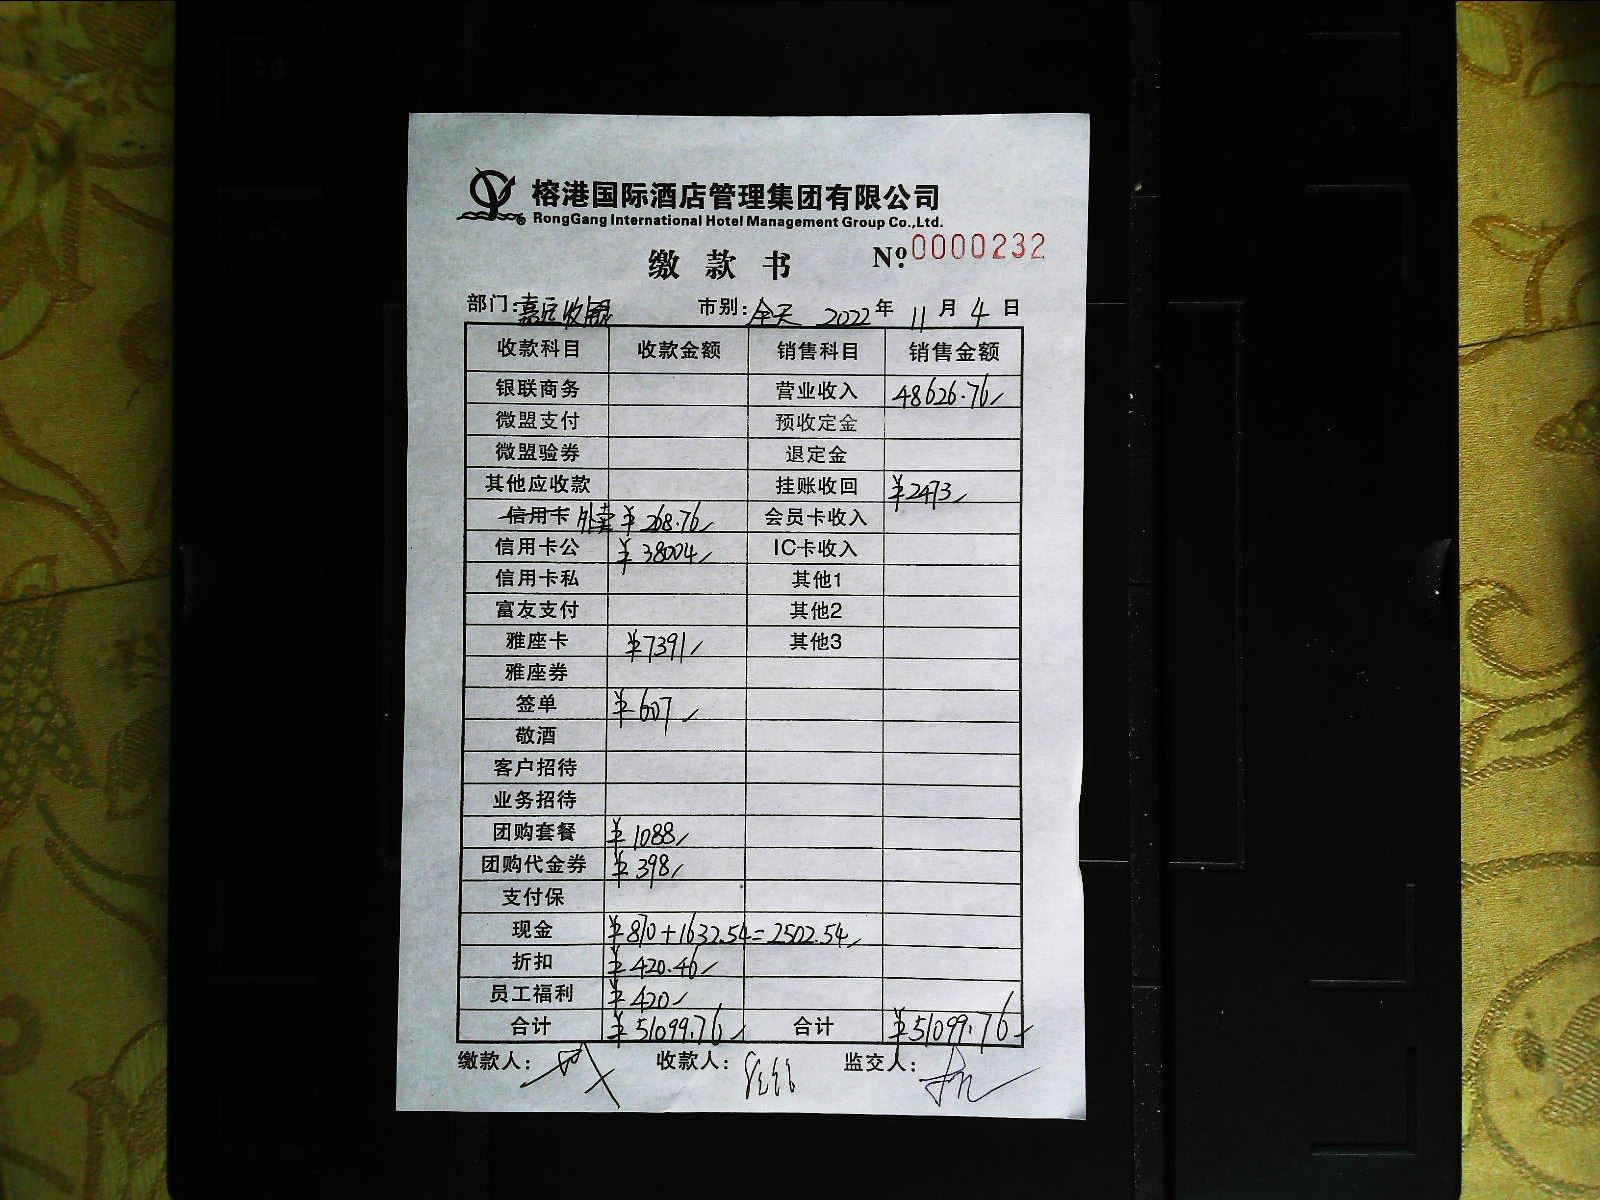 榕港国际酒店管理集团有限公司
RongGang International Hotel Management Group Co.,Ltd.
缴款书 Nº:0000232
部门: 市别:全天 2022年11月4日
收款科目 收款金额 销售科目 销售金额
银联商务 营业收入 48626.76
微盟支付 预收定金
微盟验券 退定金
其他应收款 挂账收回 ¥2473
信用卡 外卖 ¥268.76 会员卡收入
信用卡公 ¥38004 IC卡收入
信用卡私 其他1
富友支付 其他2
雅座卡 ¥7391 其他3
雅座券
签单 ¥607
敬酒
客户招待
业务招待
团购套餐 ¥1088
团购代金券 ¥398
支付保
现金 ¥870+1632.54=2502.54
折扣 ¥420.46
员工福利 ¥420
合计 ¥51099.76 合计 ¥51099.76
缴款人: 收款人: 监交人: